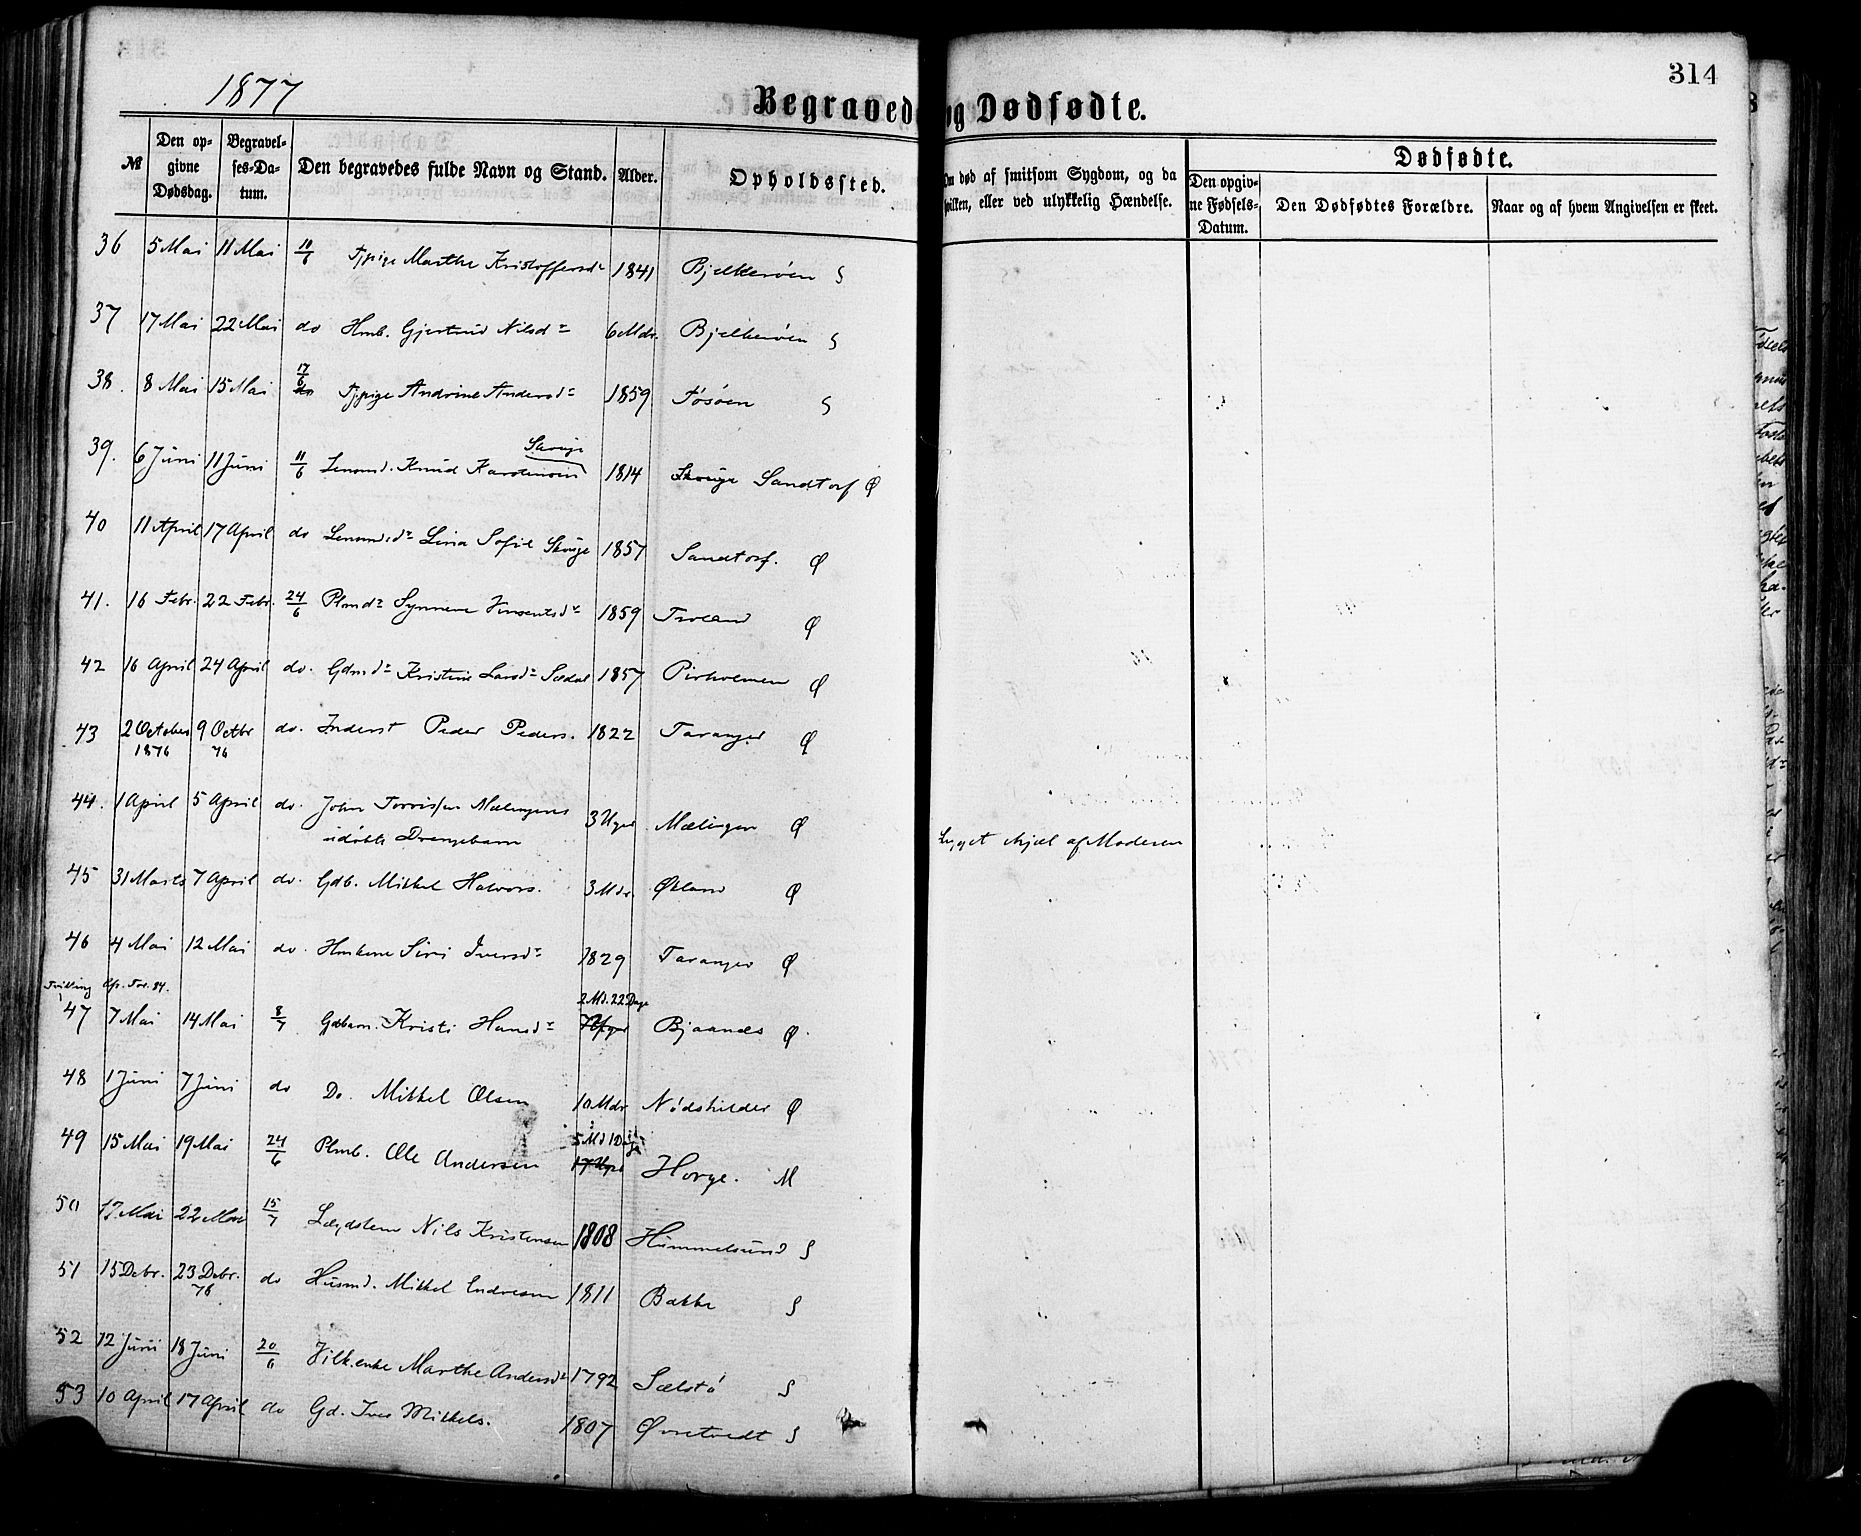 1877
314
Begravede og Dødfødte.
№
Den op-
givne
Dødsdag.
Begravel-
ses-Da-
tum.
Den begravedes fulde Navn og Stand.
Alder.
Opholdssted.
Om død af smitsom Sygdom, og da
hvilken, eller ved ulykkelig Hændelse.
Dødfødte.
Den opgiv-
ne Fødsels-
Datum.
Den Dødfødtes Forældre.
Naar og af hvem Angivelsen er skeet.
36 5 Mai 11 Mai Tjpige Marthe Kristoffersdr 1841 Bjelkerøen S
37 17 Mai 22 Mai do Hmb. Gjertrud Nilsdr 6 Mdr. Bjelkerøen S
38. 8 Mai 15 Mai 17/6 Tjpige Andrine Andersdr 1859 Tøsøen S
39. 6 Juni 11 Juni 11/6 Lensmd. Knud Karstensen Skruge 1814 Sandtorf Ø
40 11 April 17 April do Lensmdsdr Lina Sofie 1857 Sandtorf. Ø
41. 16 Febr. 22 Febr. 24/6 Plmdr Synneve Vinsentsdr 1859 Ø
42 16 April 24 April do. Gdmdr Kristine Larsdr Sædal 1857 Pirholmen Ø
43 2 October 1876 9 Octbr 76 do. Inderst Peder Peders. 1822 Taranger Ø
44. 1 April 5 April do. John Mælingens
udøbte Drengebarn 3 Uger Mælingen Ø Lygget ihjel af Moderen
45 31 Marts 7 April do. Gdb. Mikkel Halvors. 3 Mdr. Økland Ø
46 4 Mai 12 Mai do. Hmkone Siri Iversdr 1829 Taranger Ø
Tvilling
47 7 Mai 14 Mai 8/7 Gdbarn. Kristi Hansdr 2 Md. 22 Dage Bjaanæs Ø.
48 1 Juni 7 Juni do Do. Mikkel Olsen 10 Mdr Nødskilder Ø
49 15 Mai 19 Mai 24/6 Plmb. Ole Andersen 5 Md 1 Dag Horge. M
50 17. Mai 22 Mai 15/7 Lægdslem Nils Kristensen 1808 Hummelsund S
51 15 Debr. 23 Debr. 76 do Husmd. Mikkel Endresen 1811 Bakke S
52 12 Juni 18 Juni 20/6 Vilk.enke Marthe Andersdr 1792 Sælstø S
53 10 April 17 April do Gd. Iver Mikkels. 1807 Øvretvedt S